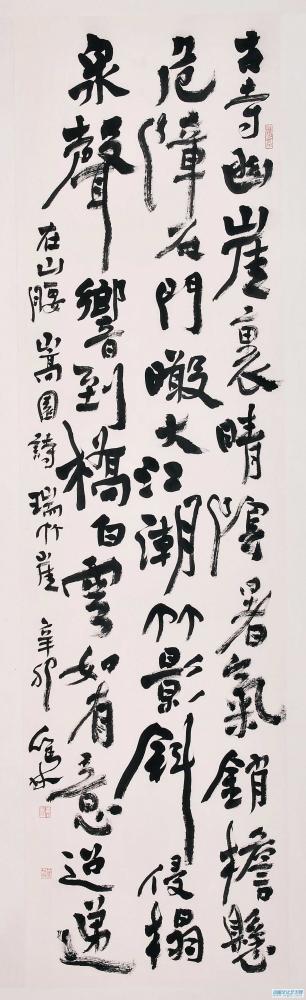 古寺幽崖裏晴陰暑氣銷檐懸
危障石門瞰大江潮竹影斜侵榻
泉聲響到橋白雲如有意迢遞
在山腰 嵩園詩 瑞竹崖 辛卯